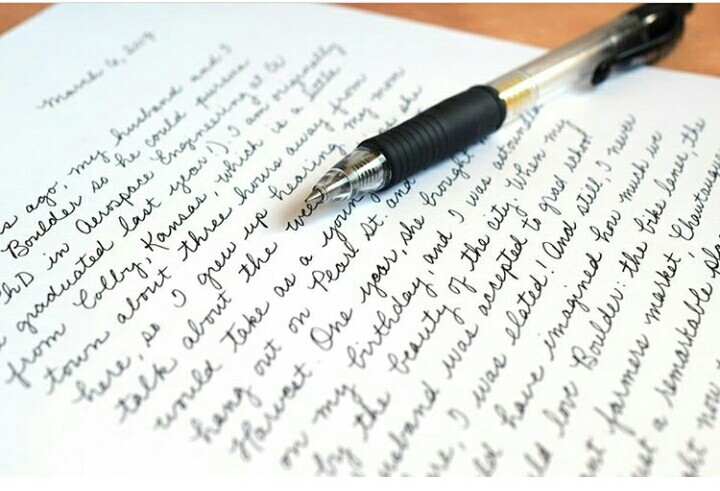 March 6, 2017
s ago, my husband and I
Boulder so he could pursue
PhD in Aerospace Engineering at CU
graduated last year!). I am originally
from Colby, Kansas, which is a little
town about three hours away from
here, so I grew up hearing my mom
talk about the she
would take as a young
hang out on Pearl St. and
Harvest. One year, she brought
on my birthday, and I was astounded
by the beauty of the city. When my
husband was accepted to grad school
here, I was elated! And still, I never
could have imagined how much we
would love Boulder: the bike lanes, the
farmers market, Chautauqua
just a remarkable
right now